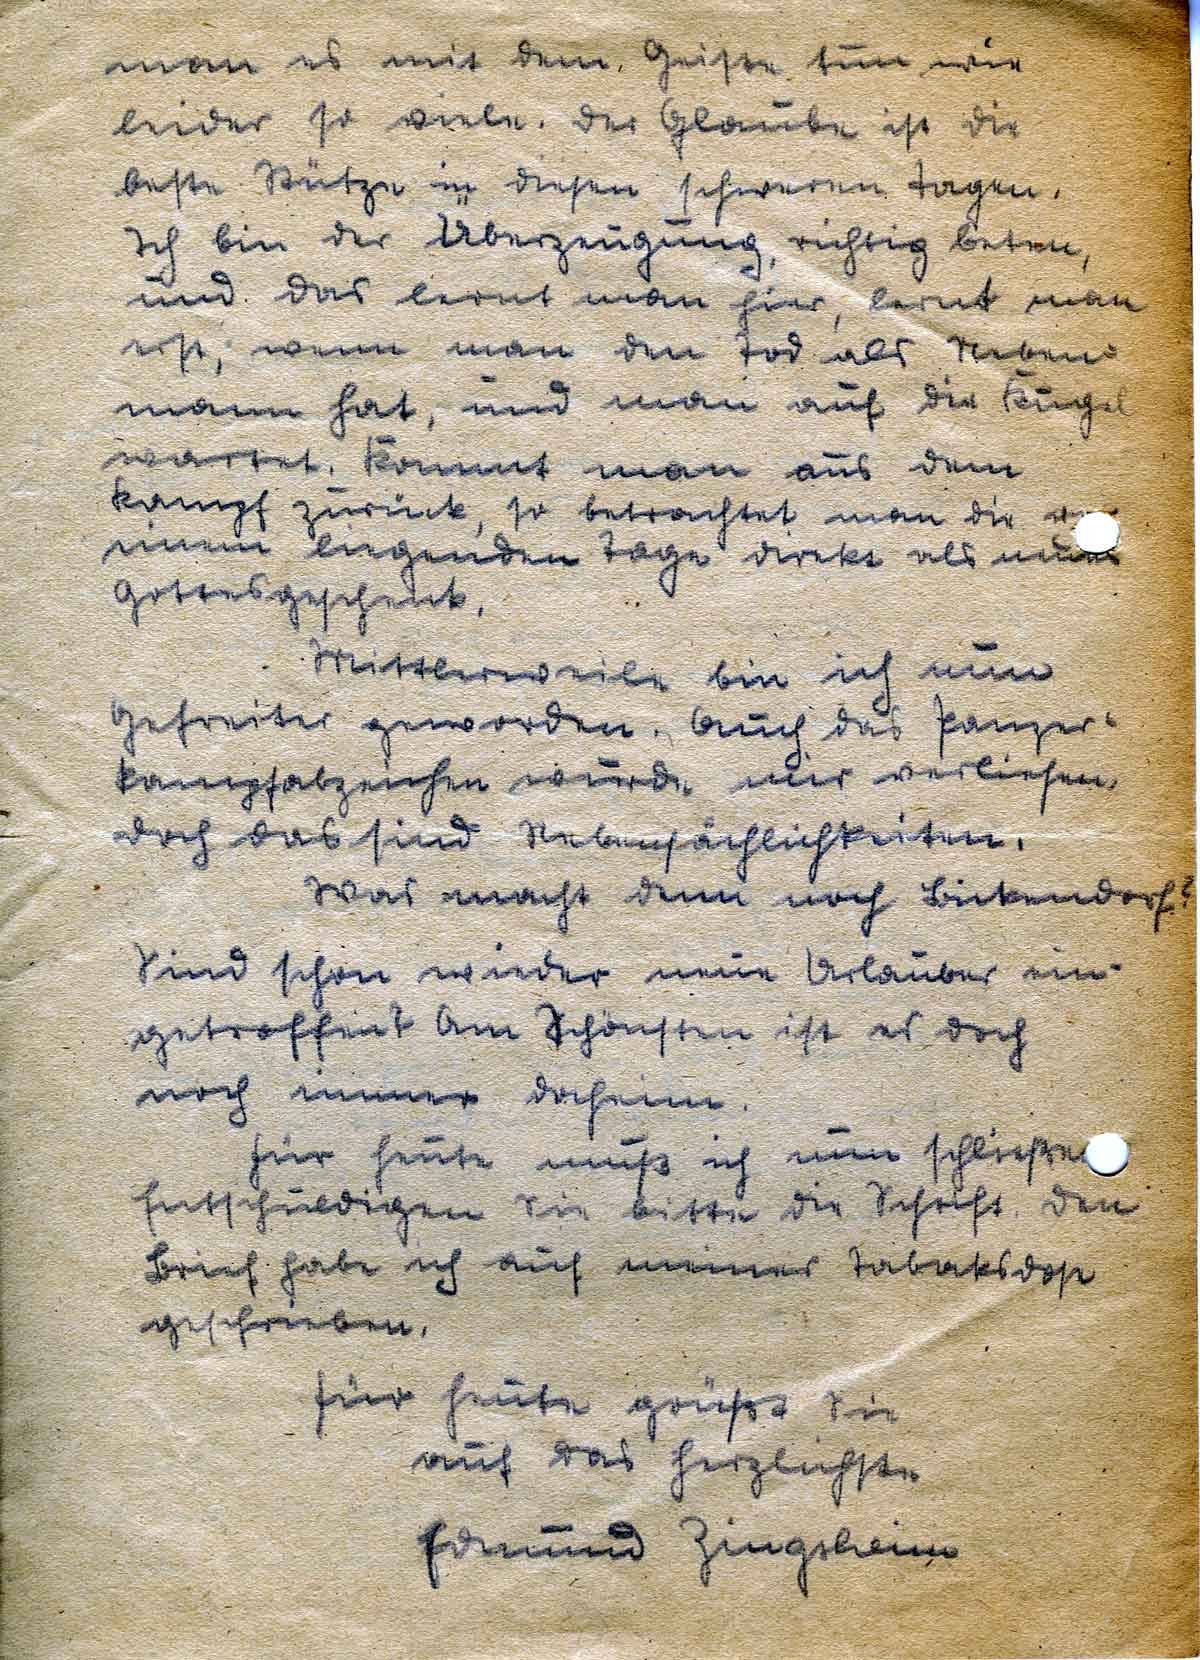 man es mit dem Geiste tun wie
leider so viele. Der Glaube ist die
beste Stütze in diesen schweren Tagen.
Ich bin der Überzeugung, richtig beten,
und das lernt man hier, lernt man
erst, wenn man den Tod als Neben-
mann hat, und man auf die Kugel
wartet. Kommt man aus dem
Kampf zurück, so betrachtet man die vor
einem liegenden Tage direkt als neues
Gottesgeschenk.
Mittlerweile bin ich nun
Gefreiter geworden. Auch das Panzer-
kampfabzeichen wurde mir verliehen.
Doch das sind Nebensächlichkeiten.
Was macht denn noch Bickendorf?
Sind schon wieder neue Urlauber ein-
getroffen? Am Schönsten ist es doch
noch immer daheim.
Für heute muß ich nun schließen
Entschuldigen Sie bitte die Schrift. Den
Brief habe ich auf meiner Tabaksdose
geschrieben.
Für heute grüßt Sie
auf das herzlichste
Edmund Zingsheim